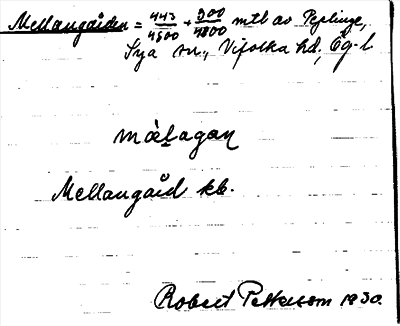 Mellangården = 443/4500 + 300/4800 mtl av Peplinge,
Sya sn., Vifolka hd, Ög. l.
målagan
Mellangård kb.
Robert Pettersson 1930.